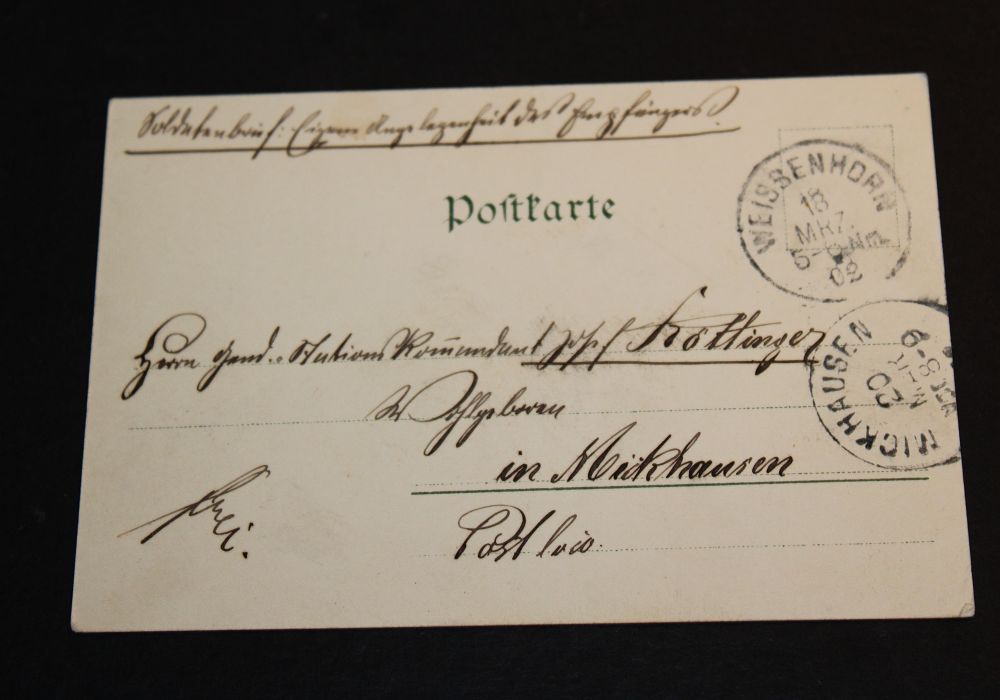 Soldatenbrief: Eigene Angelegenheit des Empfängers
Postkarte
WEISSENHORN
18
MRZ
5-6 Nm.
02
Herrn Gend.-Stations Kommandant Josef Köttinger
MICKHAUSEN
20
MRZ
8-9
Wohlgeboren
in Mickhausen
frei.
Post loco.